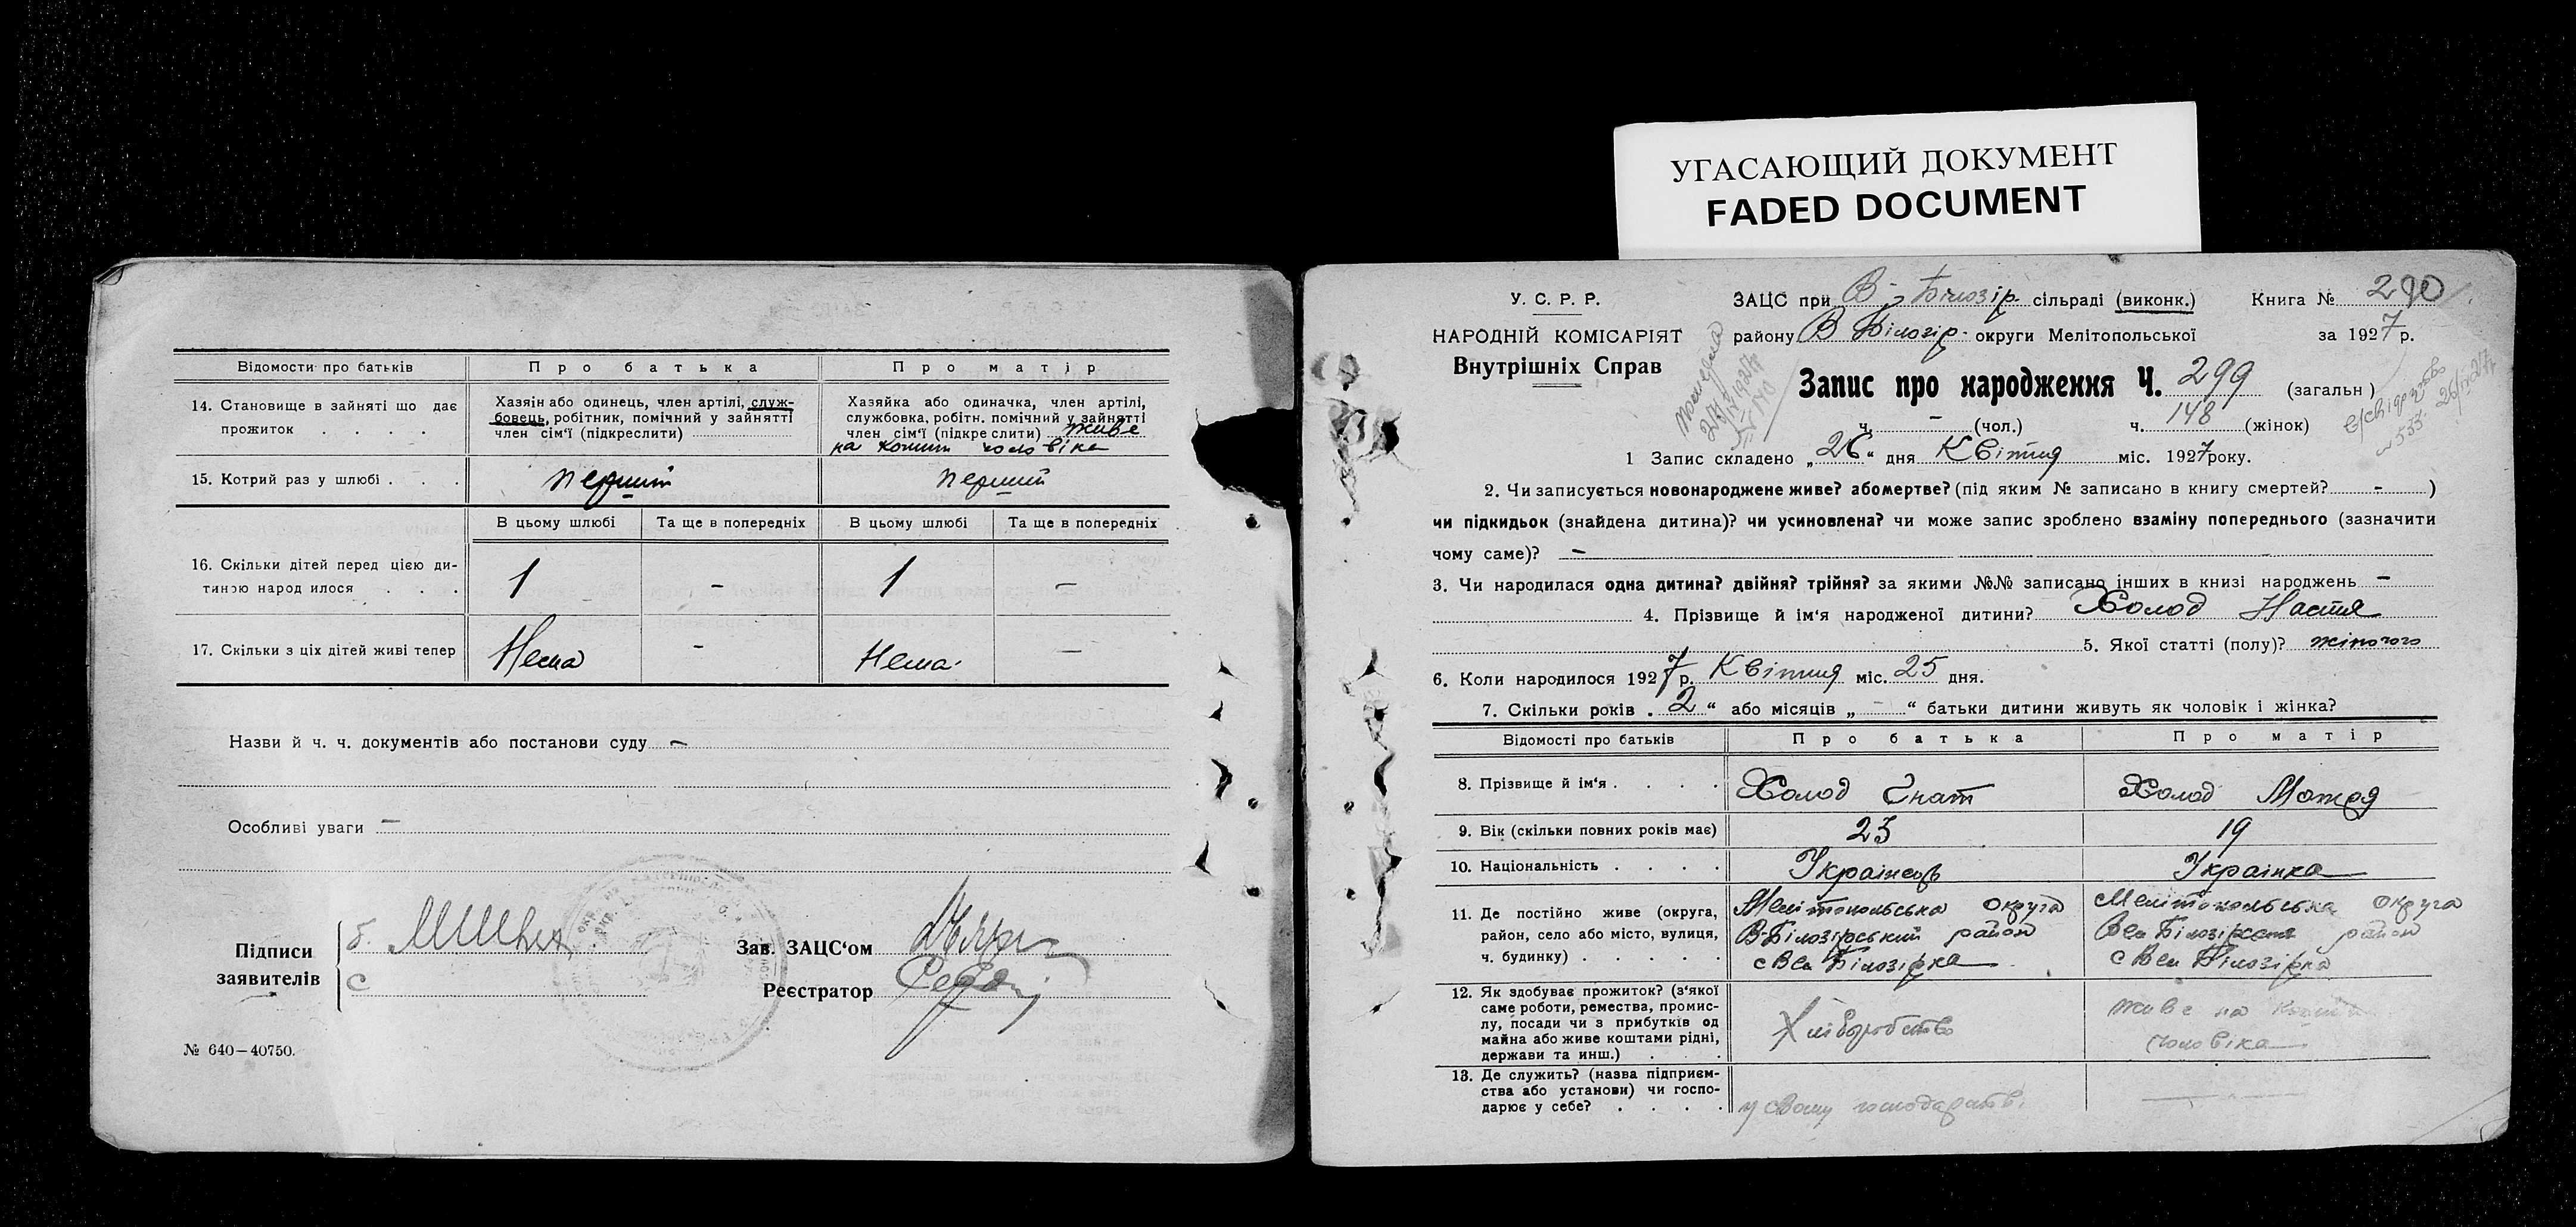 УГАСАЮЩИЙ ДОКУМЕНТ
FADED DOCUMENT
Відомости про батьків
Про батька
Про матір
14. Становище в зайняті що дає прожиток . . . .
Хазяїн або одинець, член артілі, служ-
бовець, робітник, помічний у зайнятті
член сім'ї (підкреслити)
Хазяйка або одиначка, член артілі,
службовка, робітн. помічний у зайнятті
член сім'ї (підкре слити) живе
на кошти чоловіка
15. Котрий раз у шлюбі . . .
перший
перший
В цьому шлюбі
Та ще в попередніх
В цьому шлюбі
Та ще в попередніх
16. Скільки дітей перед цією ди-
тиною народ илося . . .
1
-
1
-
17. Скільки з ціх дітей живі тепер
Нема
-
Нема
-
Назви й ч. ч. документів або постанови суду -
Особливі уваги -
Підписи
заявителів
б.
с
Зав. ЗАЦС'ом
Реєстратор
№ 640—40750.
У. С. Р. Р.
НАРОДНІЙ КОМІСАРІЯТ
Внутрішніх Справ
ЗАЦС при В-Білозір. сільраді (виконк.)
Книга № 290
району В Білозір. округи Мелітопольської
за 1927 р.
Запис про народження Ч. 299 (загальн)
ч. - (чол.) ч. 148 (жінок)
1 Запис складено „26“ дня Квітня міс. 1927 року.
2. Чи записується новонароджене живе? або мертве? (під яким № записано в книгу смертей? - )
чи підкидьок (знайдена дитина)? чи усиновлена? чи може запис зроблено взаміну попереднього (зазначити
чому саме)? -
3. Чи народилася одна дитина? двійня? трійня? за якими №№ записано інших в книзі народжень -
4. Прізвище й ім'я народженої дитини? Холод Настя
5. Якої статті (полу)? жіночого
6. Коли народилося 1927 р. Квітня міс. 25 дня.
7. Скільки років „2“ або місяців „-“ батьки дитини живуть як чоловік і жінка?
Відомості про батьків
Про батька
Про матір
8. Прізвище й ім'я . . . .
Холод Гнат
Холод Мотря
9. Вік (скільки повних років має)
23
19
10. Національність . . . .
Українець
Українка
11. Де постійно живе (округа,
район, село або місто, вулиця,
ч. будинку) . . . . .
Мелітопольська округа
В-Білозірський район
с Вел Білозірка
Мелітопольська округа
Вел Білозірськ район
с Вел Білозірка
12. Як здобуває прожиток? (з'якої
саме роботи, ремества, промис-
лу, посади чи з прибутків од
майна або живе коштами рідні,
держави та инш.) . . .
Хліборобство
живе на кошти
чоловіка
13. Де служить? (назва підприєм-
ства або установи) чи госпо-
дарює у себе? . . . .
у свому господарстві